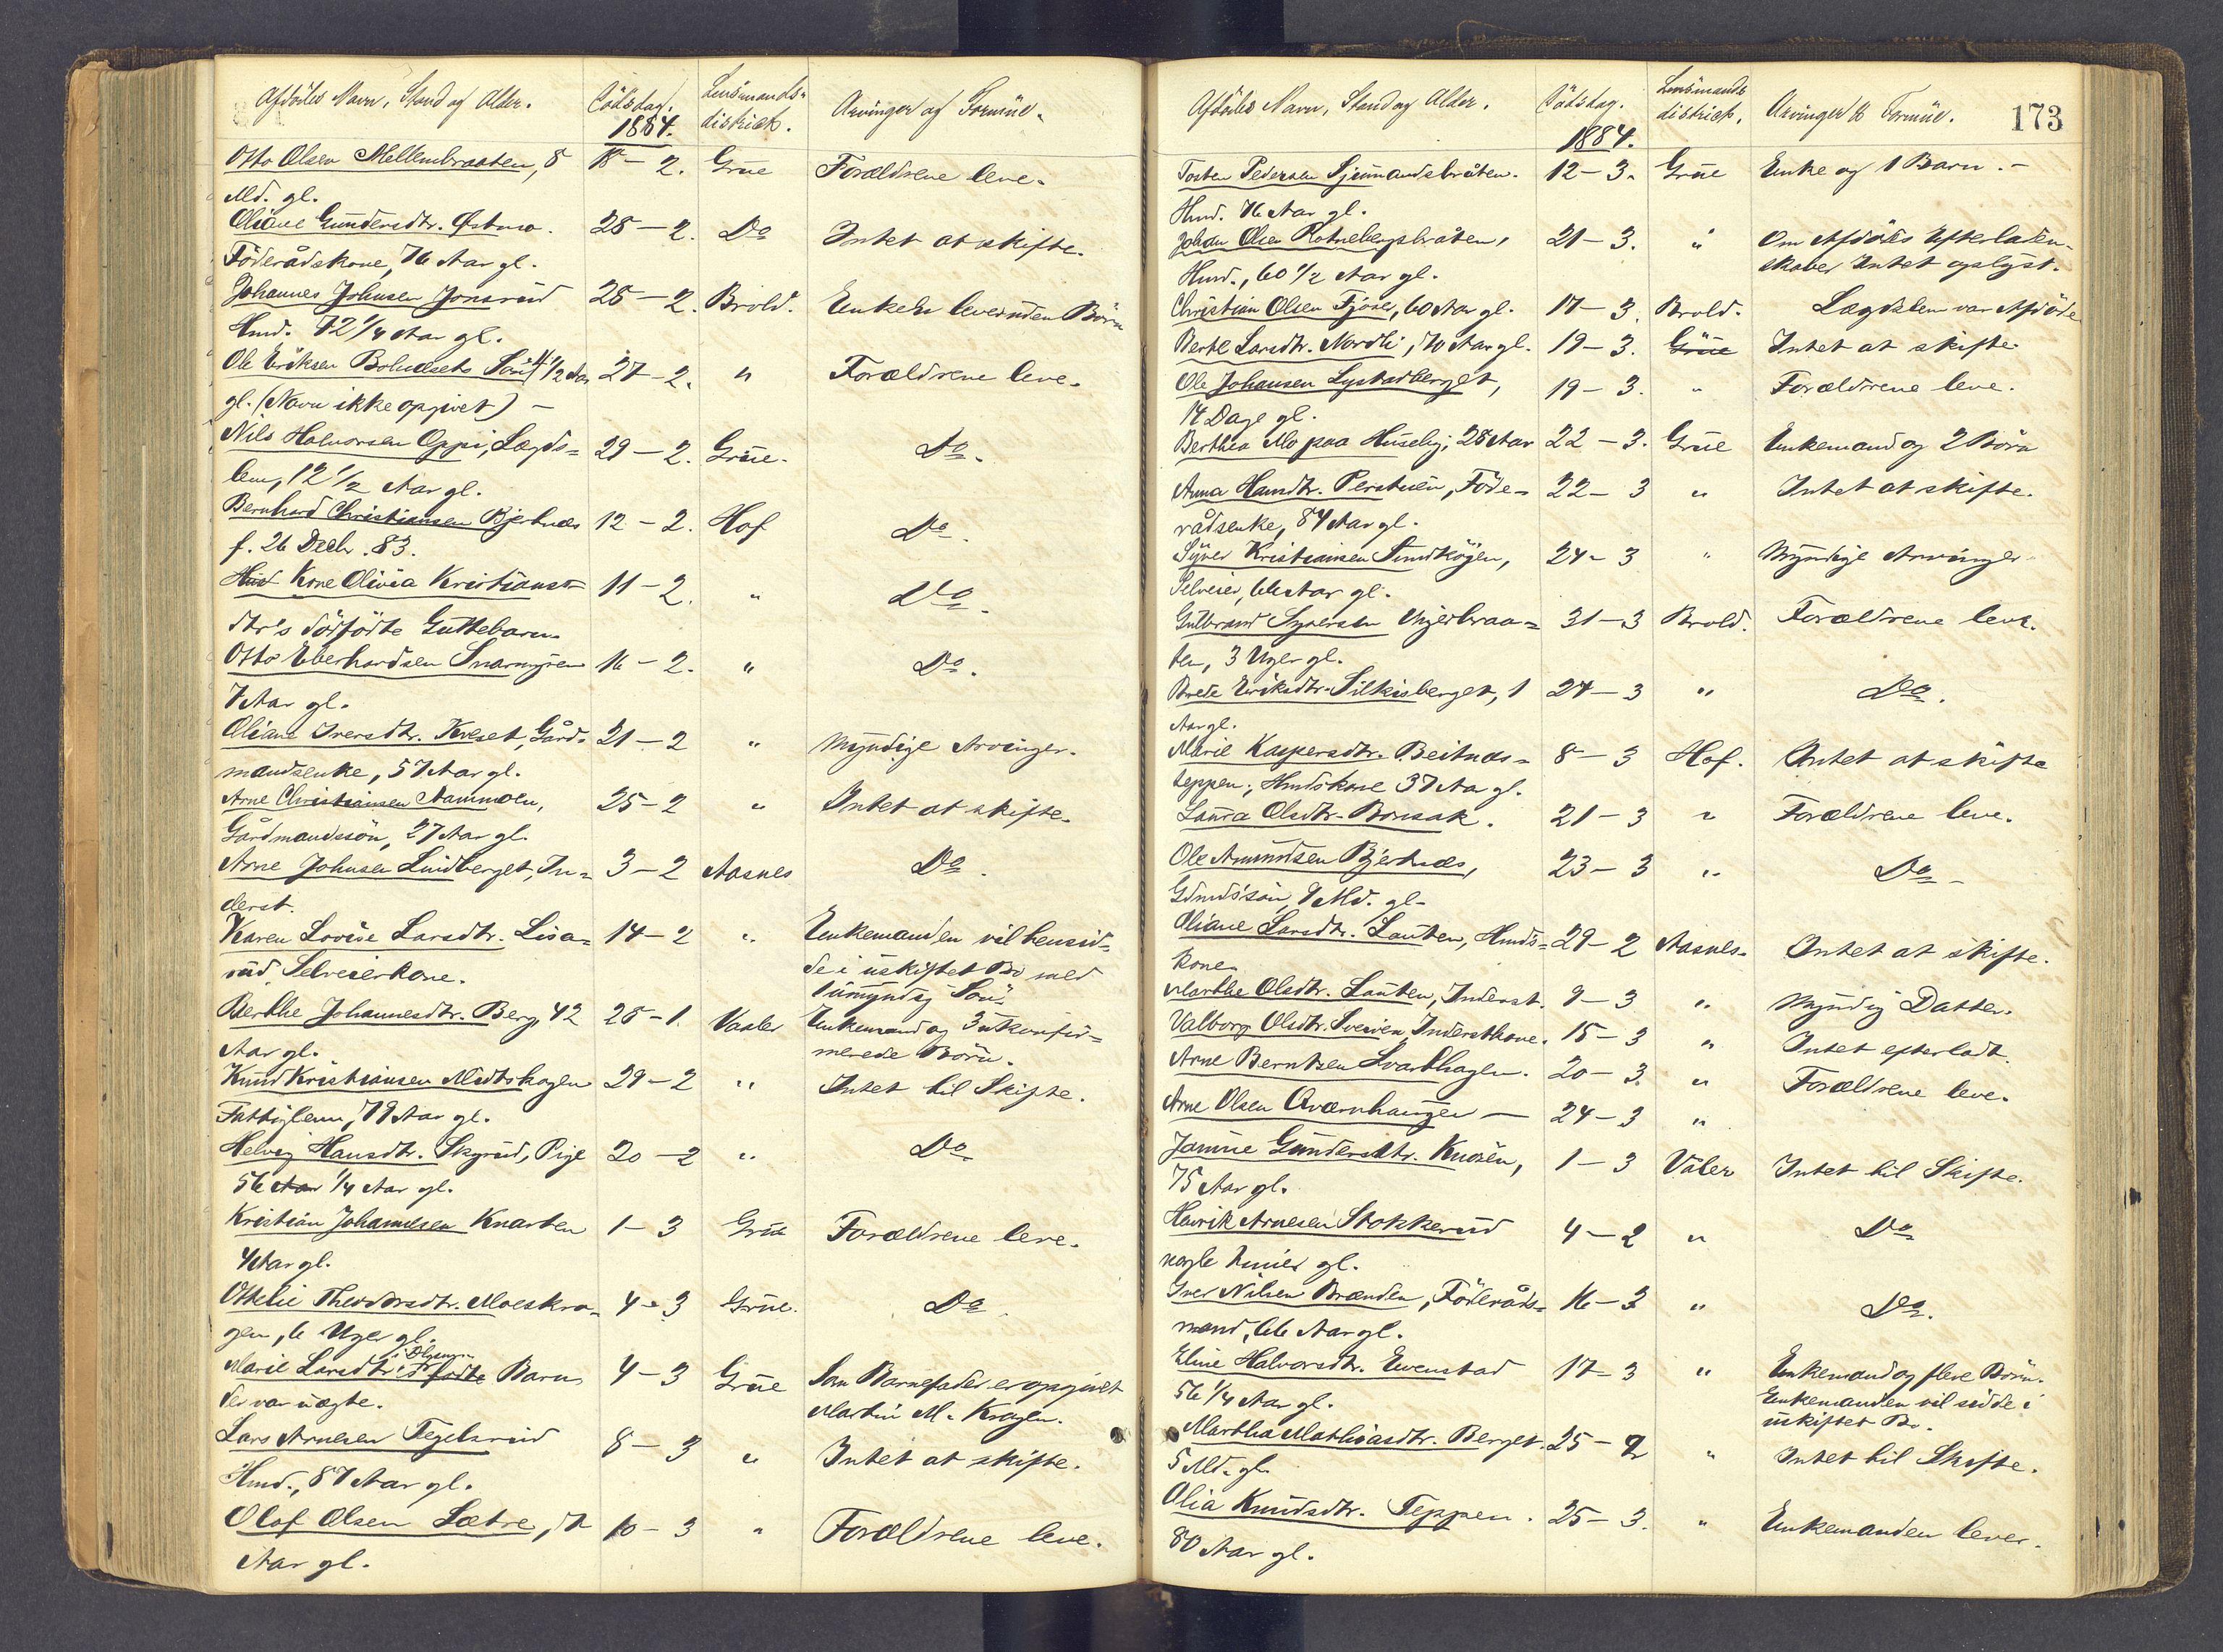 Afdödes Navn, Stand og Alder.
Dödsdag.
1884.
Lensmands-
district.
Arvinger og Formue.
Otto Olsen Mellembraaten, 8 18 – 2. Grue Forældrene leve.
Md. gl.
Oliane Gundersdtr. Östmo. 28 – 2. Do Intet at skifte.
Föderådskone, 76 Aar gl.
Johannes Johnsen Jonsrud 25 – 2. Brold.
Hmd. 72 1/4 Aar gl.
Ole Eriksen Bolnæsets Sön, 1/2 Aar 27 – 2. " Forældrene leve.
gl. (Navn ikke opgivet) –
Nils Halvorsen Oppi, Lægds= 29 – 2. Grue. Do.
lem, 12 1/2 Aar gl.
Bernhard Christiansen Bjerknes 12 – 2. Hof Do.
f. 26 Decbr. 83.
Kone Olivia Kristians= 11 – 2. " Do.
dtr's dödfödte Guttebarn.
Otto Eberhardsen Snarmyren 16 – 2. " Do.
7 Aar gl.
Oliane Iversdtr. Kveset, Gård= 21 – 2 " Myndige Arvinger.
mandsenke, 57 Aar gl.
Arne Christiansen Nammoen, 25 – 2 " Intet at skifte.
Gårdmandssön, 27 Aar gl.
Arne Johnsen Lindberget, In= 3 – 2 Aasnes Do.
derst.
Karen Lovise Larsdtr. Lisa= 14 – 2 " Enkemanden vil hensid=
rud Selveierkone. de i uskiftet Bo med
1 umyndig Sön.
Berthe Johannesdtr. Berg, 42 28 – 1. Vaaler Enkemand og 3 ukonfir=
Aar gl. merede Börn.
Knud Kristiansen Midtskogen 29 – 2 " Intet til Skifte.
Fattiglem, 79 Aar gl.
Helvig Hansdtr. Skyrud, Pige 20 – 2 " Do
56 Aar 1/4 Aar gl.
Kristian Johannesen Knarten 1 – 3 Grue Forældrene leve.
4 Aar gl.
Othelie Theodorsdtr. Moeskro= 4 – 3 Grue. Do.
gen, 6 Uger gl.
Marie Larsdtr. dfödte Barn 4 – 3 Grue Som Barnefader er opgivet
der var uægte. Martin M. Krogen.
Lars Arnesen Tegelsrud 8 – 3 " Intet at skifte.
Hmd., 87 Aar gl.
Olof Olsen Sætre, 10 – 3 " Forældrene leve.
Aar gl.
173
Afdödes Navn, Stand og Alder.
Dödsdag.
1884.
Lensmands
district.
Arvinger & Formue.
Torsten Pedersen Sjumandsbråten. 12 – 3. Grue Enke og 1 Barn. –
Hmd. 76 Aar gl.
Johan Olsen Rotnebergsbråten, 21 – 3. " Om Afdödes Efterladen-
Hmd., 60 1/2 Aar gl. skaber Intet oplyst.
Christian Olsen Fjöser, 60 Aar gl. 17 – 3. Brold. Lægdslem var Afdöde
Berte Larsdtr. Nordli, 70 Aar gl. 19 – 3. Grue Intet at skifte
Ole Johansen Lystadberget, 19 – 3. " Forældrene leve.
14 Dage gl.
Berthea Mo paa Huseby, 28 Aar 22 – 3. Grue Enkemand og 2 Börn
Anna Hansdtr. Perstuen, Föde= 22 – 3 " Intet at skifte.
rådsenke, 84 Aar gl.
Syver Kristiansen Sundkögen, 24 – 3 " Myndige Arvinger
Selveier, 66 Aar gl.
Gulbrand Syversen Unjerbraa= 31 – 3 Brold. Forældrene leve.
ten, 3 Uger gl.
Brede Eriksdtr. Silkisberget, 1 27 – 3 " Do.
Aar gl.
Marie Kaspersdtr. Beitnæs= 8 – 3 Hof. Intet at skifte
teppen, Hmdskone 37 Aa gl.
Laura Olsdtr. Bonsak. 21 – 3 " Forældrene leve.
Ole Amundsen Bjerknes, 23 – 3 " Do –
Gdmdssön, 9 Md. gl.
Oliane Larsdtr. Lauten, Hmds= 29 – 2 Aasnes. Intet at skifte.
kone.
Marthe Olsdtr. Lauten, Inderst. 9 – 3 " Myndig Datter.
Valborg Olsdtr. Sveien Inderstkone. 15 – 3 " Intet efterladt.
Arne Berntsen Svarthagen. 20 – 3. " Forældrene leve.
Arne Olsen Qværnhaugen — 24 – 3 "
Jamine Gundersdtr. Knasen, 1 – 3 Våler Intet til Skifte.
75 Aar gl.
Henrik Arnesen Stokkerud 4 – 2 " Do
nogle gl.
Iver Nilsen Brænden, Föderåds= 16 – 3 " Do.
mand, 66 Aar gl.
Eline Halvorsdtr. Evenstad 17 – 3 " Enkemand og flere Börn.
56 1/4 Aar gl. Enkemanden vil sidde i
uskiftet Bo.
Martha Mathiasdtr. Berget. 25 – 2 " Intet til Skifte.
5 Md. gl.
Olia Knudsdtr. Teppen. 25 – 3. " Enkemanden lever.
80 Aar gl.